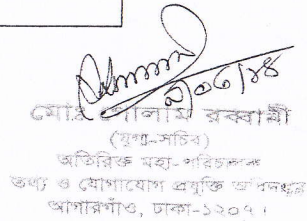 ২/০৬/১৪
মোঃ গোলাম রব্বানী
(যুগ্ম-সচিব)
অতিরিক্ত মহা-পরিচালক
তথ্য ও যোগাযোগ প্রযুক্তি অধিদপ্তর
আগারগাঁও, ঢাকা-১২০৭।